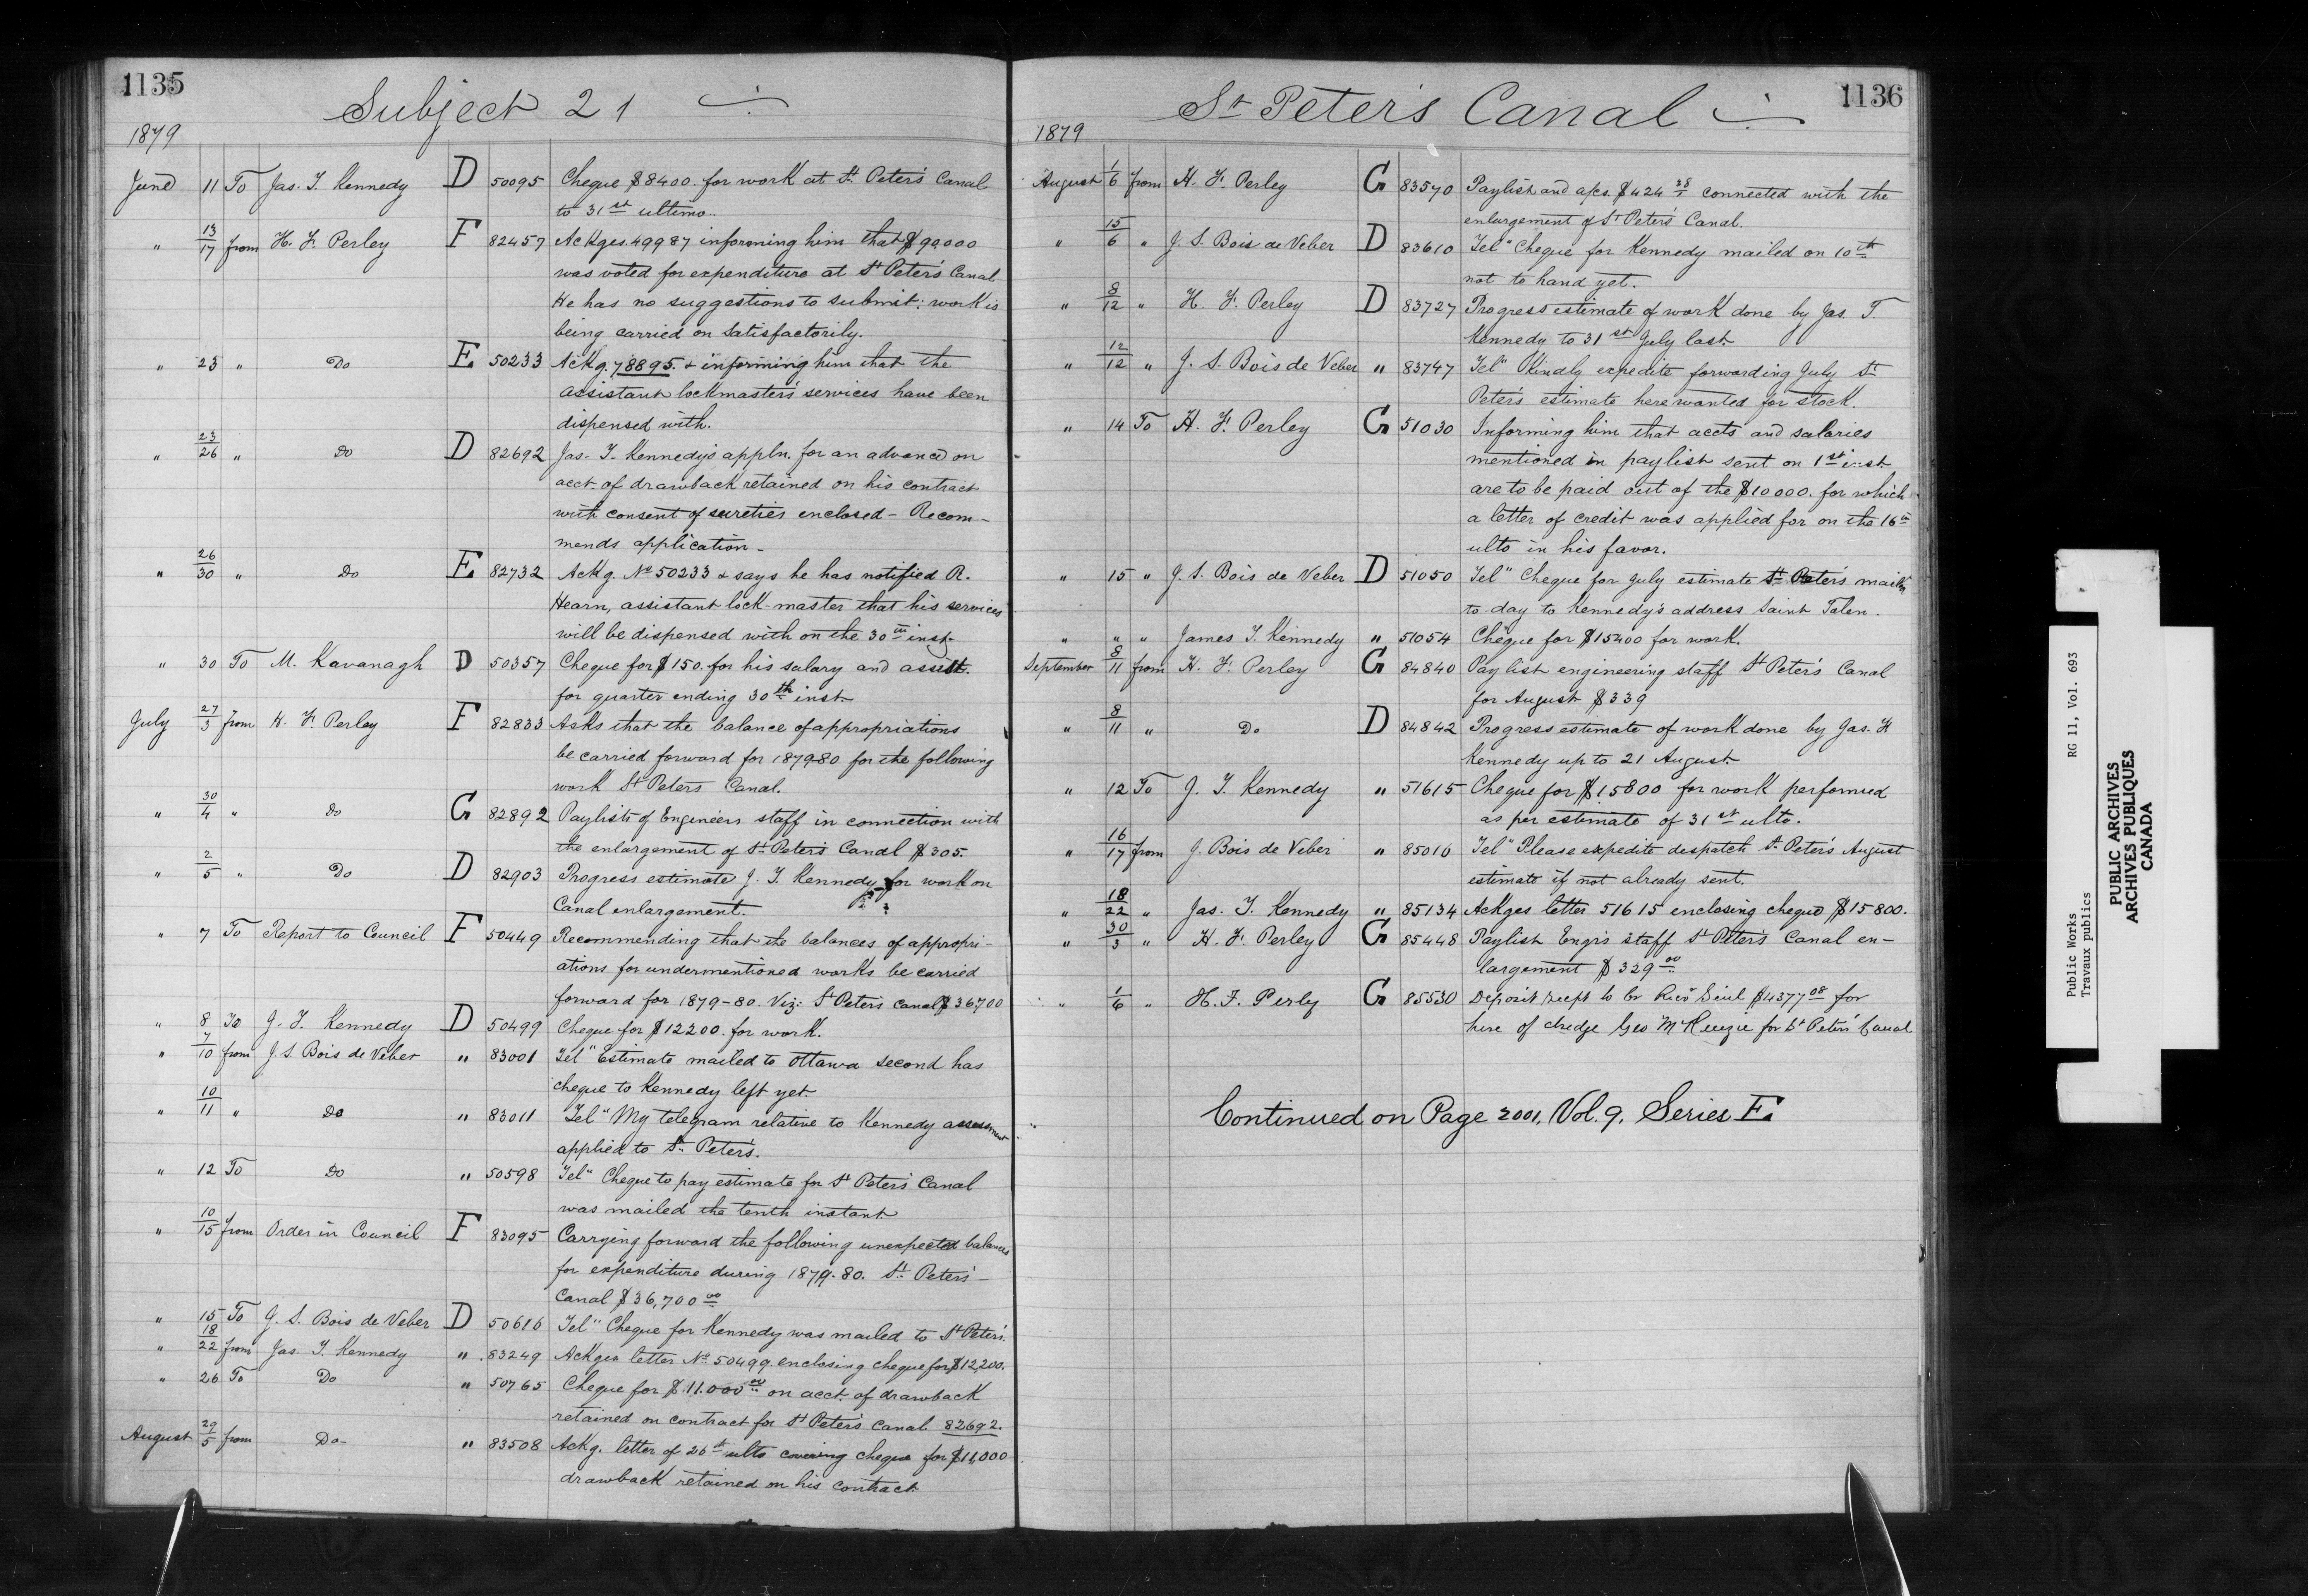 1135
Subject 21
1879
June 11 To Jas. T. Kennedy D 50095 Cheque $8400. for work at St. Peter's Canal
to 31st ultimo.
" 13/17 from H. F. Perley F 82457 Ackges. 49987 informing him that $90000
was voted for expenditure at St Peter's Canal
He has no suggestions to submit: work is
being carried on satisfactorily.
" 23 " Do E 50233 Ackg. 78895. & informing him that the
assistant lockmaster's services have been
dispensed with.
" 23/26 " Do D 82692 Jas. T. Kennedy's appln. for an advance on
acct. of drawback retained on his contract
with consent of sureties enclosed - Recom-
mends application -
" 26/30 " Do E 82732 Ackg. No 50233 & says he has notified R.
Hearn, assistant lock-master that his services
will be dispensed with on the 30th inst.
" 30 To M. Kavanagh D 50357 Cheque for $150. for his salary and assist.
for quarter ending 30th inst
July 27/3 from H. F. Perley F 82833 Asks that the balance of appropriations
be carried forward for 1879-80 for the following
work St Peters Canal.
" 30/4 " Do G 82892 Paylists of Engineers staff in connection with
the enlargement of St Peter's Canal $305.
" 2/5 " Do D 82903 Progress estimate J. T. Kennedy for work on
Canal enlargement.
" 7 To Report to Council F 50449 Recommending that the balances of appropri-
ations for undermentioned works be carried
forward for 1879-80. Viz: St Peter's Canal $36700
" 8 To J. T. Kennedy D 50499 Cheque for $12200. for work.
" 7/10 from J. S. Bois de Veber " 83001 Tel" Estimate mailed to Ottawa second has
cheque to Kennedy left yet.
" 10/11 " Do " 83011 Tel" My telegram relative to Kennedy assessment
applied to St. Peter's.
" 12 To Do " 50598 Tel" Cheque to pay estimate for St Peter's Canal
was mailed the tenth instant
" 10/15 from Order in Council F 83095 Carrying forward the following unexpected balances
for expenditure during 1879-80. St. Peter's -
Canal $36,700 00
" 15 To J. S. Bois de Veber D 50616 Tel" Cheque for Kennedy was mailed to St Peter's.
" 18/22 from Jas. T. Kennedy " 83249 Ackges letter No 50499 enclosing cheque for $12,200.
" 26 To Do " 50765 Cheque for $11.000 00 on acct. of drawback
retained on contract for St Peter's Canal 82692.
August 29/5 from Do- " 83508 Ackg. letter of 26th ulto covering cheque for $11,000
drawback retained on his contract.
1136
St Peter's Canal
1879
August 1/6 from H. F. Perley G 83570 Paylist and a/cs. $424 connected with the
enlargement of St Peters' Canal.
" 15/6 " J. S. Bois de Veber D 83610 Tel" Cheque for Kennedy mailed on 10th
not to hand yet.
" 8/12 " H. F. Perley D 83727 Progress estimate of work done by Jas. T.
Kennedy to 31st July last.
" 12/12 " J. S. Bois de Veber " 83747 Tel" Kindly expedite forwarding July St
Peter's estimate here wanted for stock.
" 14 To H. F. Perley G 51030 Informing him that accts and salaries
mentioned in paylist sent on 1st inst
are to be paid out of the $10000. for which
a letter of credit was applied for on the 16th
ulto in his favor.
" 15 " J. S. Bois de Veber D 51050 Tel" Cheque for July estimate St Peter's mailed
to-day to Kennedy's address Saint
" " " James T. Kennedy " 51054 Cheque for $15400 for work.
September 8/11 from H. F. Perley G 84840 Paylist engineering staff St Peter's Canal
for August $339
" 8/11 " Do D 84842 Progress estimate of work done by Jas. H
Kennedy up to 21 August.
" 12 To J. T. Kennedy " 51615 Cheque for $15800 for work performed
as per estimate of 31st ulto.
" 16/17 from J. Bois de Veber " 85016 Tel" Please expedite despatch St Peter's August
estimate if not already sent.
" 18/22 " Jas. T. Kennedy " 85134 Ackges letter 51615 enclosing cheque $15800.
" 30/3 " H. F. Perley G 85448 Paylist Engr's staff St Peter's Canal en-
largement $329 00
" 1/6 " H. F. Perly G 85530 Deposit recpt to cr Recr Genl $4377 08 for
hire of dredge Geo McKenzie for St Peters' Canal
Continued on Page 2001, Vol. 9. Series E.
Public Works RG 11, Vol. 693
Travaux publics
PUBLIC ARCHIVES
ARCHIVES PUBLIQUES
CANADA